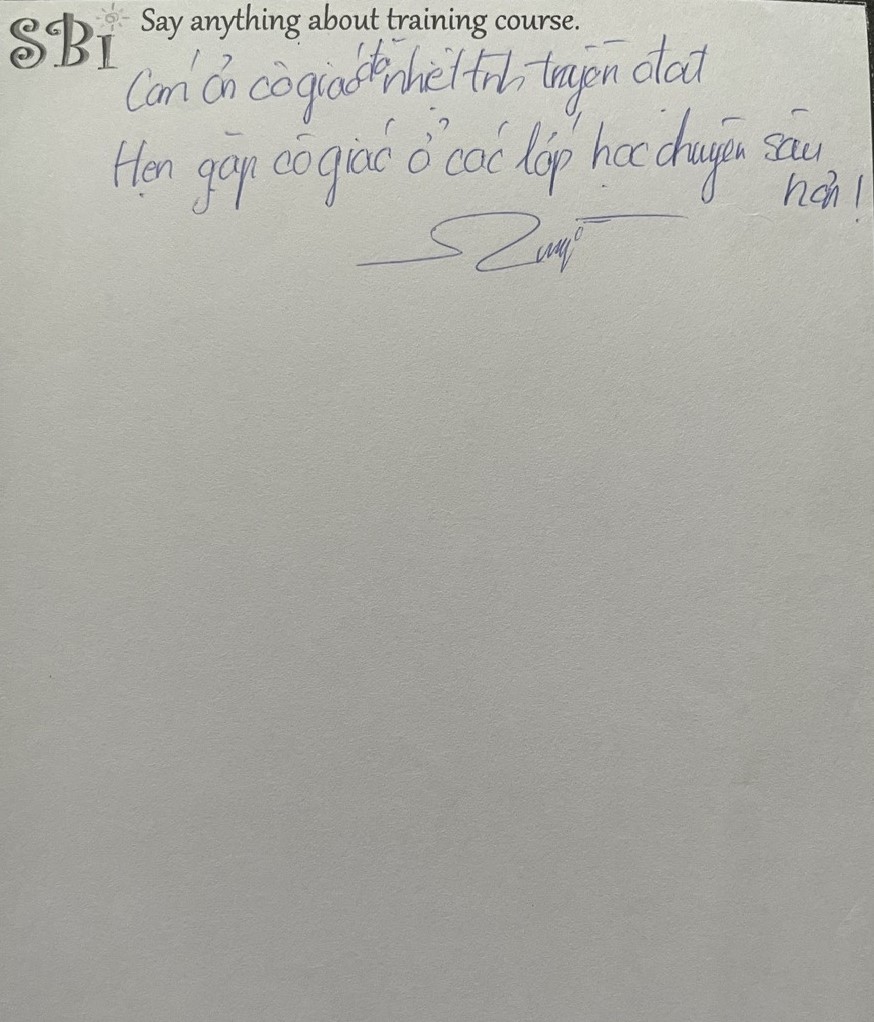 SBI Say anything about training course.
Cảm ơn cô giáo đã nhiệt tình truyền đạt
Hẹn gặp cô giáo ở các lớp học chuyên sâu
hơn!